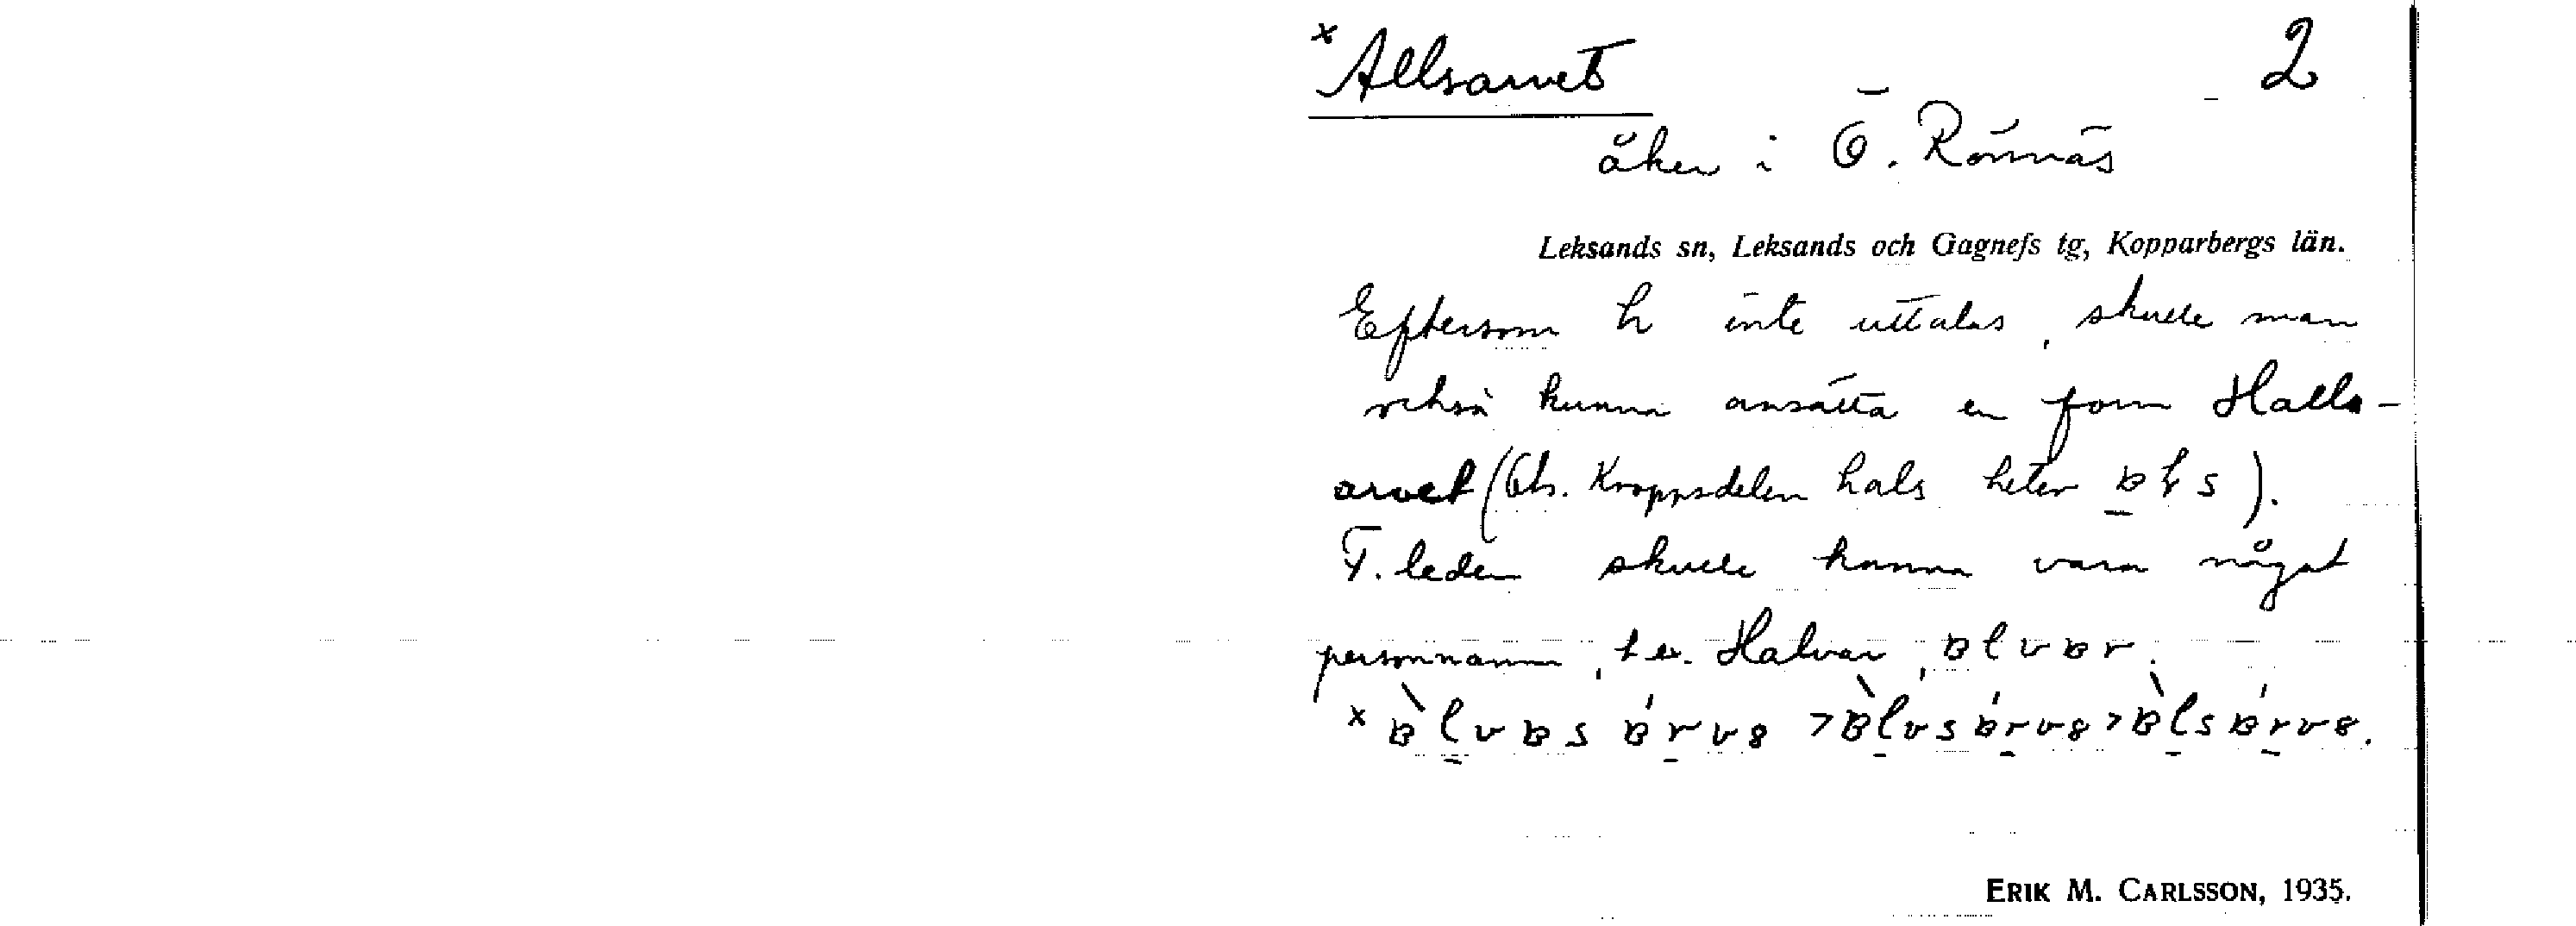 x Allsarvet 2
åker i Ö. Rönnäs
Leksands sn, Leksands och Gagnefs tg, Kopparbergs län.
Eftersom h inte uttalas, skulle man
också kunna ansätta en form Halls-
arvet (Obs. Kroppsdelen hals heter
F. leden skulle kunna vara något
personnamn, t ex. Halvar,
ERIK M. CARLSSON, 1935.